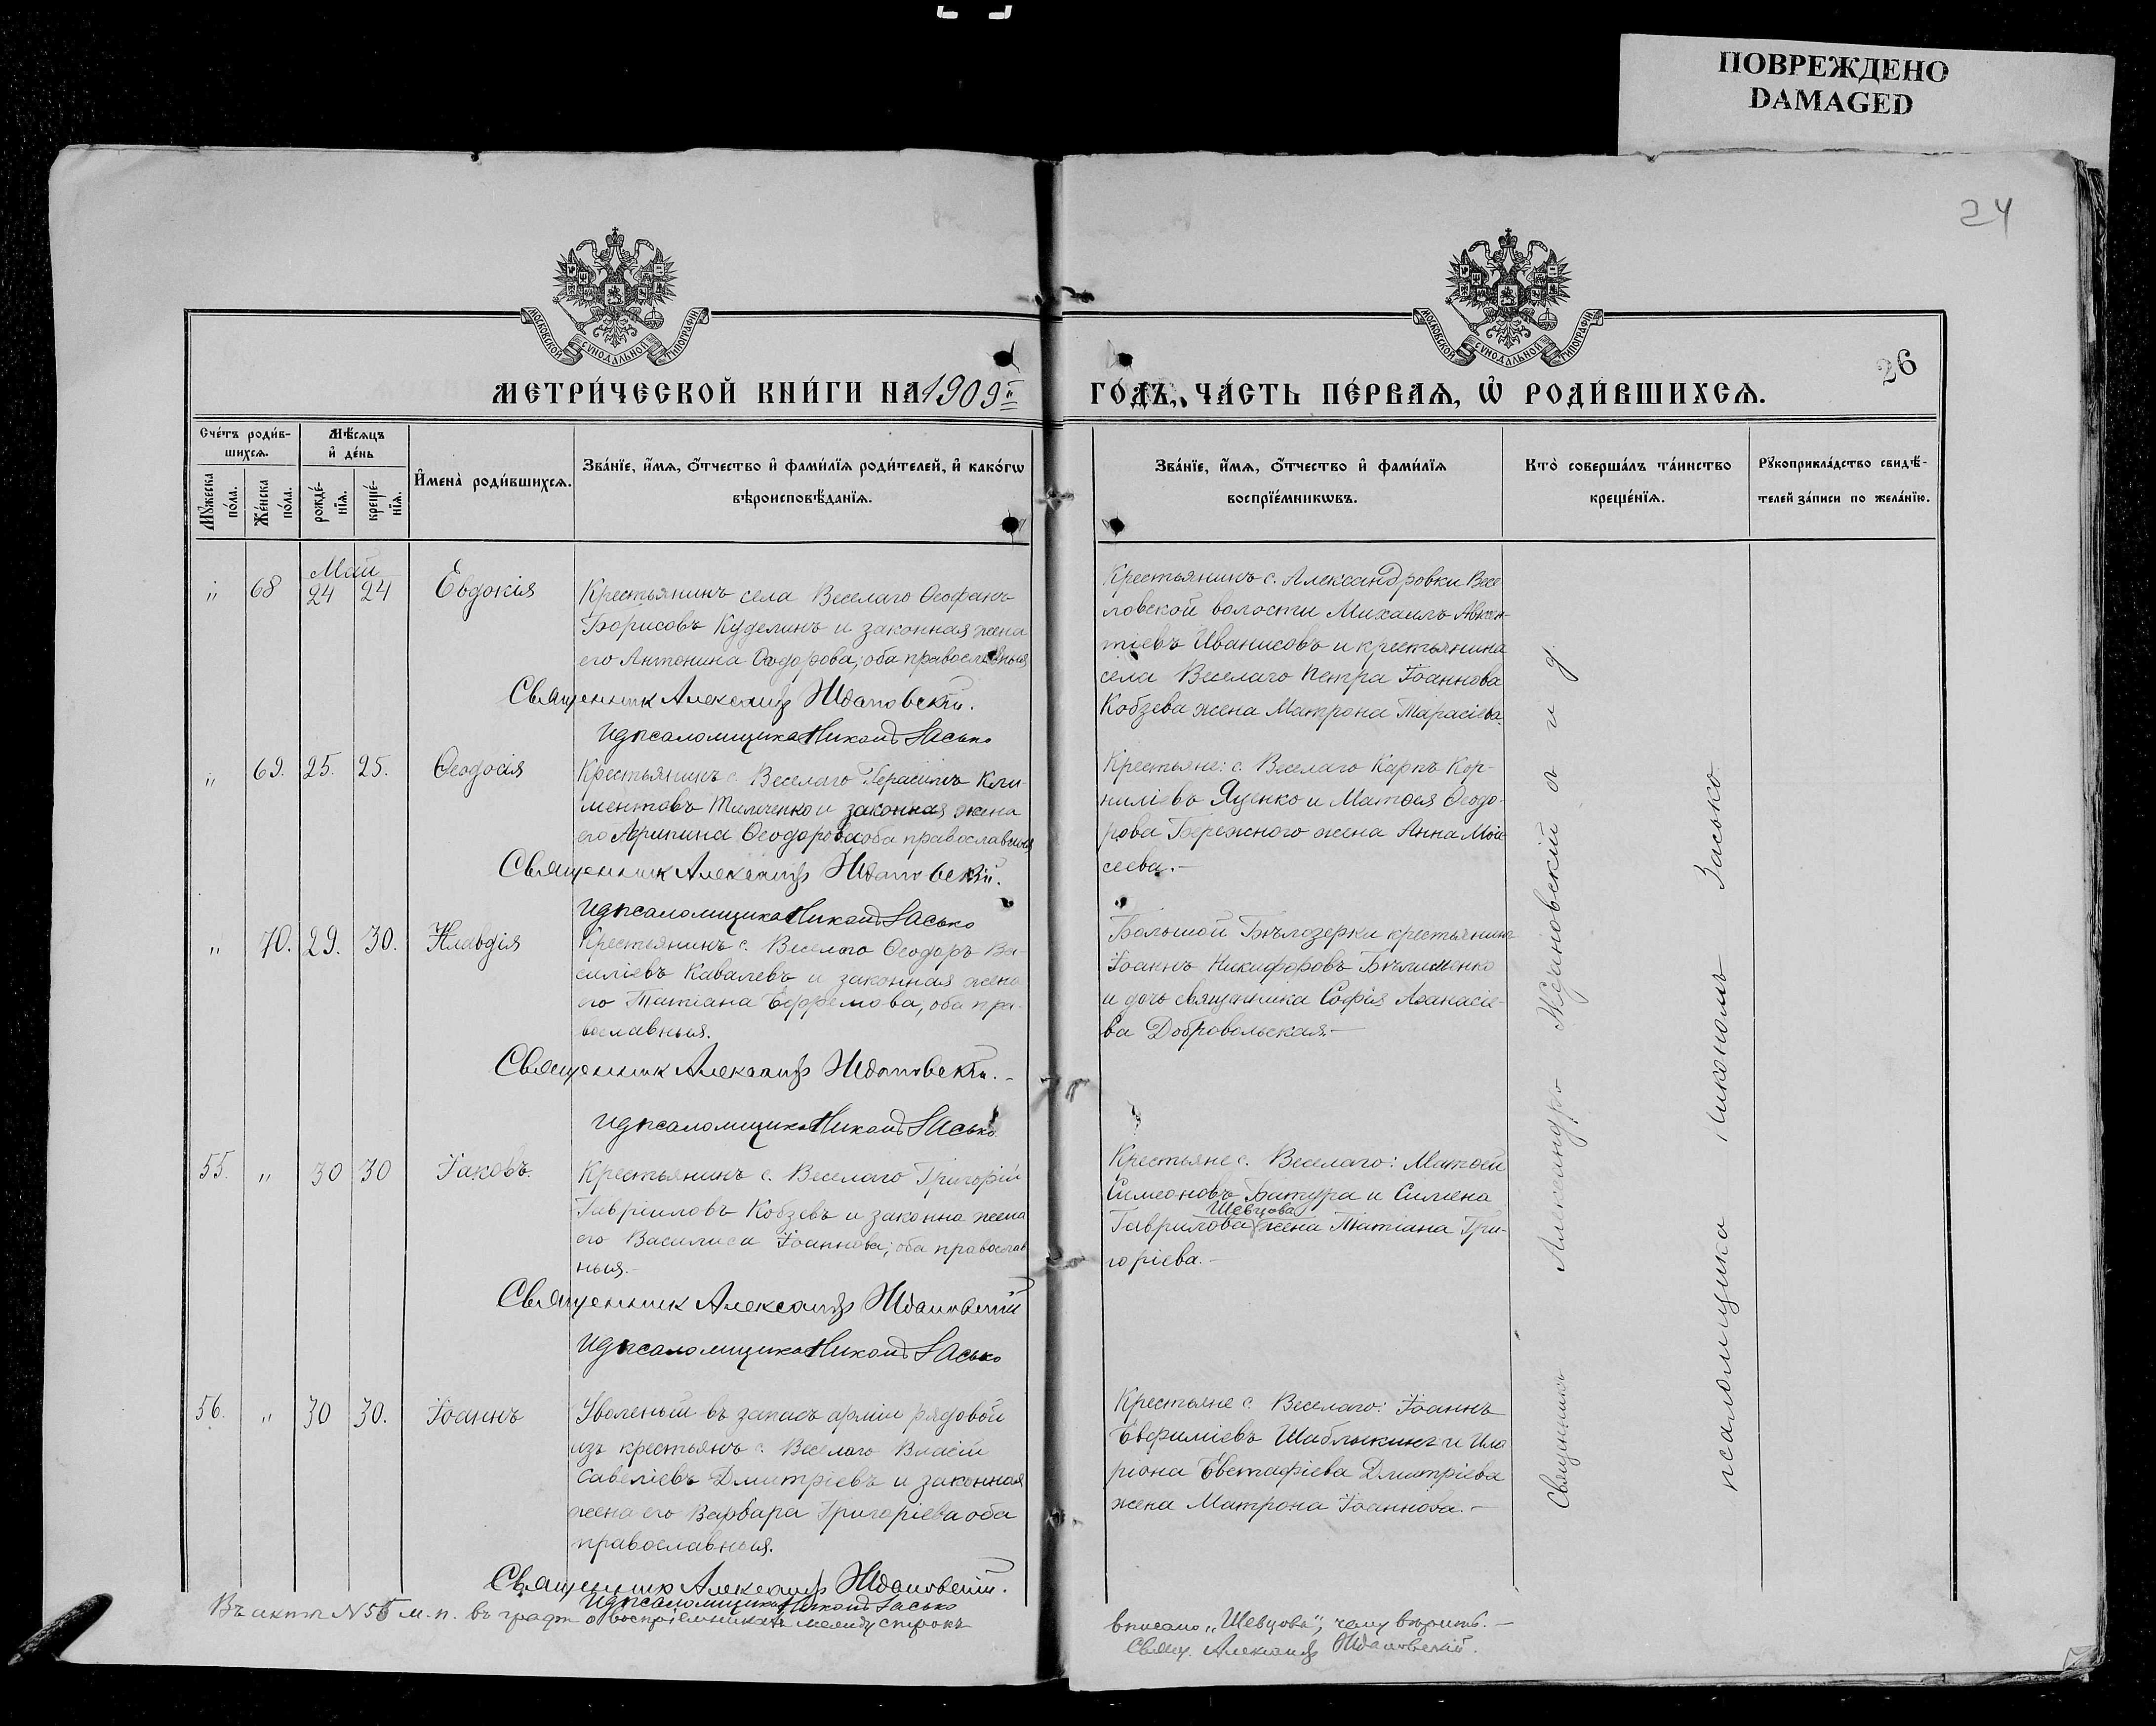 ПОВРЕЖДЕНО
DAMAGED
24
МОСКОВСКОЙ СѴНОДАЛЬНОЙ ТИПОГРАФІИ
МОСКОВСКОЙ СѴНОДАЛЬНОЙ ТИПОГРАФІИ
26
МЕТРИ́ЧЕСКОЙ КНИ́ГИ НА 1909й
ГО́ДЪ, ЧА́СТЬ ПЕ́РВАѦ, Ѽ РОДИ́ВШИХСѦ.
Сче́тъ роди́в-
шихсѧ.
Мꙋ́жеска по́ла.
Же́нска по́ла.
Мѣ́сѧцъ
и҆ де́нь
рожде́-
нїѧ.
креще́-
нїѧ.
И҆мена̀ роди́вшихсѧ.
Зва́нїе, и҆́мѧ, ѻ҆́тчество и҆ фами́лїѧ роди́телей, и҆ како́гѡ
вѣроисповѣ́данїѧ.
Зва́нїе, и҆́мѧ, ѻ҆́тчество и҆ фами́лїѧ
воспрїе́мникѡвъ.
Кто̀ соверша́лъ та́инство
креще́нїѧ.
Рꙋкоприкла́дство свидѣ́-
телей за́писи по жела́нїю.
Май
" 68 24 24 Евдокія
Крестьянинъ села Веселаго Ѳеофанъ
Борисовъ Куделинъ и законная жена
его Антонина Ѳеодорова; оба православныя
Священник Александр Ждановскій.
И д псаломщика Никонъ Засько
Крестьянинъ с. Александровки Весе-
ловской волости Михаилъ Авксен-
тіевъ Иванисовъ и крестьянина
села Веселаго Петра Іоаннова
Кобзева жена Матрона Тарасіева.
" 69. 25. 25. Ѳеодосія
Крестьянинъ с. Веселаго Герасимъ Кли-
ментовъ Тимченко и законная жена
его Агрипина Ѳеодорова оба православныя
Священник Александр Ждановскій.
И д псаломщика Никонъ Засько
Крестьяне: с. Веселаго Карпъ Кор-
ниліевъ Яценко и Матѳея Ѳеодо-
рова Бережного жена Анна Мои-
сеева.-
" 70. 29. 30. Клавдія
Крестьянинъ с. Веселаго Ѳеодоръ Ва-
силіевъ Кавалевъ и законная жена
его Татіана Ефремова, оба пра-
вославныя.
Священник Александр Ждановскій.-
И д псаломщика Никонъ Засько
Большой Бѣлозерки крестьянинъ
Іоаннъ Никифоровъ
и дочь священника Софія Аѳанасіе-
ва Добровольская.-
55. " 30 30 Іаковъ.
Крестьянинъ с. Веселаго Григорій
Гавріиловъ Кобзевъ и законна жена
его Василиса Іоаннова; оба православ
ныя.-
Священник Александр Ждановскій
И д псаломщика Никонъ Засько
Крестьяне с. Веселаго: Матѳей
Симеоновъ Батура и Симена
Шевцова
Гаврилова жена Татіана Гри-
горіева.-
56. " 30 30. Іоаннъ
Уволеный въ запасъ арміи рядовой
изъ крестьянъ с. Веселаго Власій
Савеліевъ Дмитріевъ и законная
жена его Варвара Григоріева оба
православныя.
Священник Александр Ждановскій.
И д псаломщика Никонъ Засько
Крестьяне с. Веселаго: Іоаннъ
Евфиміевъ Шаблыкинъ и Ила
ріона Евстафіева Дмитріева
жена Матрона Іоаннова.-
Священникъ Александръ Ждановскій съ и д
псаломщика Никономъ Засько
Въ актѣ № 55 м. п. въ графѣ о воспріемникахъ между строкъ
вписано „Шевцова", чему вѣрить.-
Свящ. Александр Ждановскій.